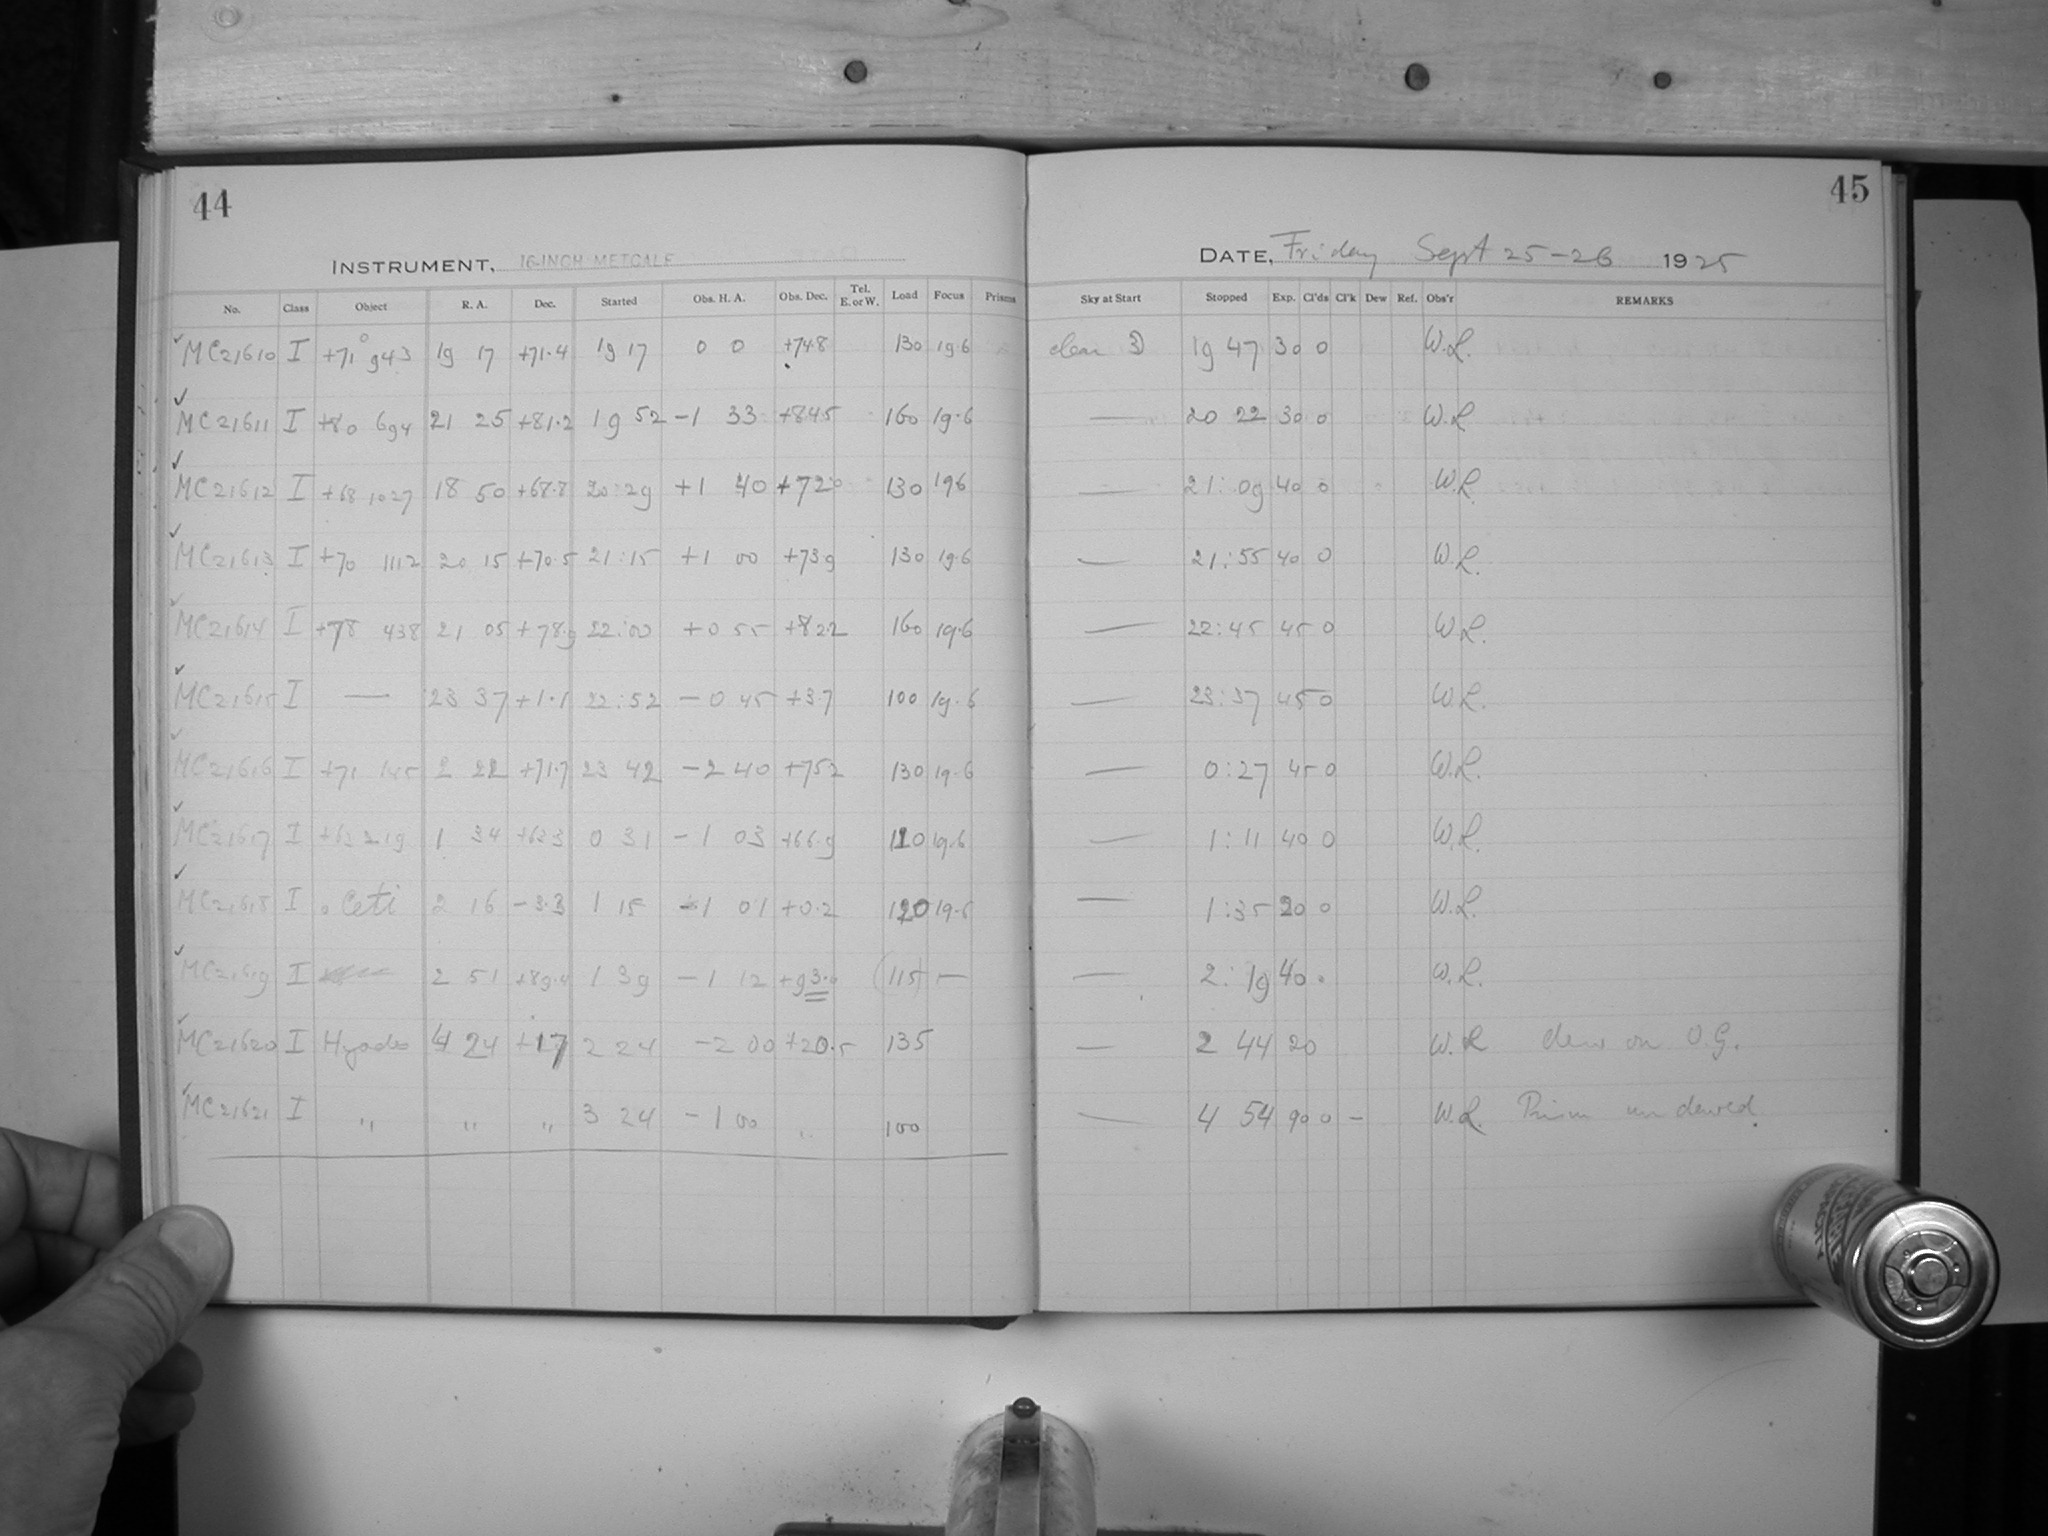 44
INSTRUMENT, 16-INCH METCALF
No. Class Object R. A. Dec. Started Obs. H. A. Obs. Dec. Tel. E. or W. Load Focus Prisms
MC21610 I +71° 943 19 17 +71.4 19 17 0 0 +74.8 130 19.6
MC21611 I +80 694 21 25 +81.2 19 52 -1 33 +84.5 160 19.6
MC21612 I +68 1027 18 50 +68.8 20:29 +1 40 +72.0 130 19.6
MC21613 I +70 1112 20 15 +70.5 21:15 +1 00 +73.9 130 19.6
MC21614 I +78 438 21 05 +78.9 22:00 +0 55 +82.2 160 19.6
MC21615 I — 23 37 +1.1 22:52 -0 45 +3.7 100 19.6
MC21616 I +71 145 2 22 +71.7 23 42 -2 40 +75.2 130 19.6
MC21617 I +63 219 1 34 +63.3 0 31 -1 03 +66.9 110 19.6
MC21618 I o Ceti 2 16 -3.3 1 15 -1 01 +0.2 120 19.5
MC21619 I 2 51 +89.4 1 39 -1 12 +93.0 (115) —
MC21620 I Hyades 4 24 +17 2 24 -2 00 +20.5 135
MC21621 I " " " 3 24 -1 00 " 100
45
DATE, Friday Sept 25-26 1925
Sky at Start Stopped Exp. Cl'ds Cl'k Dew Ref. Obs'r REMARKS
clear 3 19 47 30 0 W.L.
— 20 22 30 0 W.L
— 21:09 40 0 W.L.
— 21:55 40 0 W.L.
— 22:45 45 0 W.L.
— 23:37 45 0 W.L.
— 0:27 45 0 W.L.
— 1:11 40 0 W.L.
— 1:35 20 0 W.L.
— 2:19 40 0 W.L.
— 2 44 20 W.L dew on O.G.
— 4 54 90 0 — W.L. Prism undewed